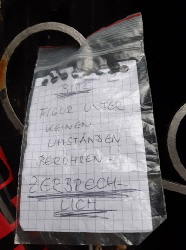 BITTE
FIGUR UNTER
KEINEN
UMSTÄNDEN
BERÜHREN.
ZERBRECH-
LICH